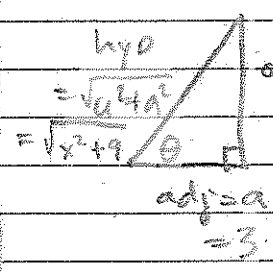 hyp
= √u²+a²
= √x²+9
θ
adj = a
= 3